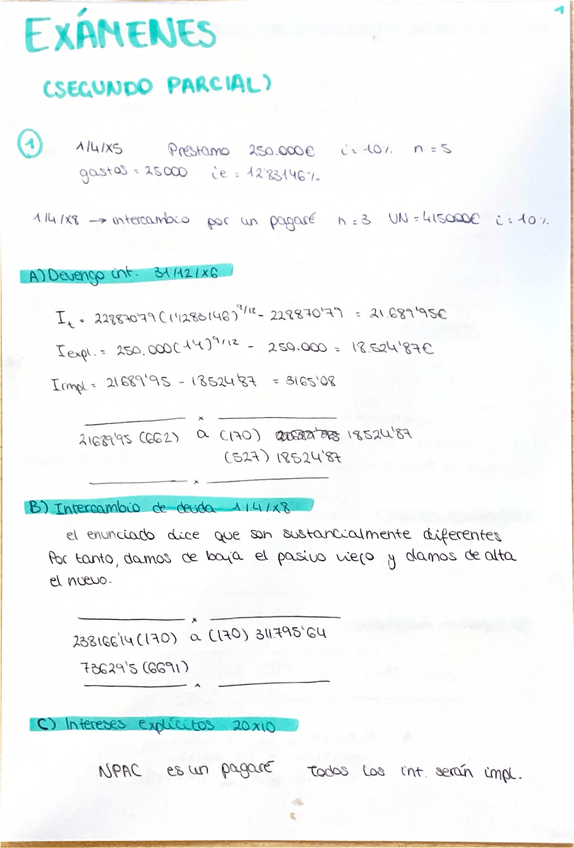 1
EXÁMENES
(SEGUNDO PARCIAL)
1 1/4/X5 Préstamo 250.000€ i = 10% n = 5
gastos = 25000 ie = 12'83146%
1/4/X8 → intercambio por un pagaré n = 3 VN = 415000€ i = 10%
A) Devengo int. 31/12/X6
It = 22887079 (1'1283146)^9/12 - 228870'79 = 21.689'95€
Iexpl. = 250.000 (1'1)^9/12 - 250.000 = 18.524'87€
Iimpl = 21689'95 - 18524'87 = 3165'08
x
21689'95 (662) a (170) 18524'87
(527) 18524'87
x
B) Intercambio de deuda 1/4/X8
el enunciado dice que son sustancialmente diferentes
Por tanto, damos de baja el pasivo viejo y damos de alta
el nuevo.
x
238166'14 (170) a (170) 311795'64
73629'5 (6691)
x
C) Intereses explícitos 20X10
NPAC es un pagaré todos los int. serán impl.